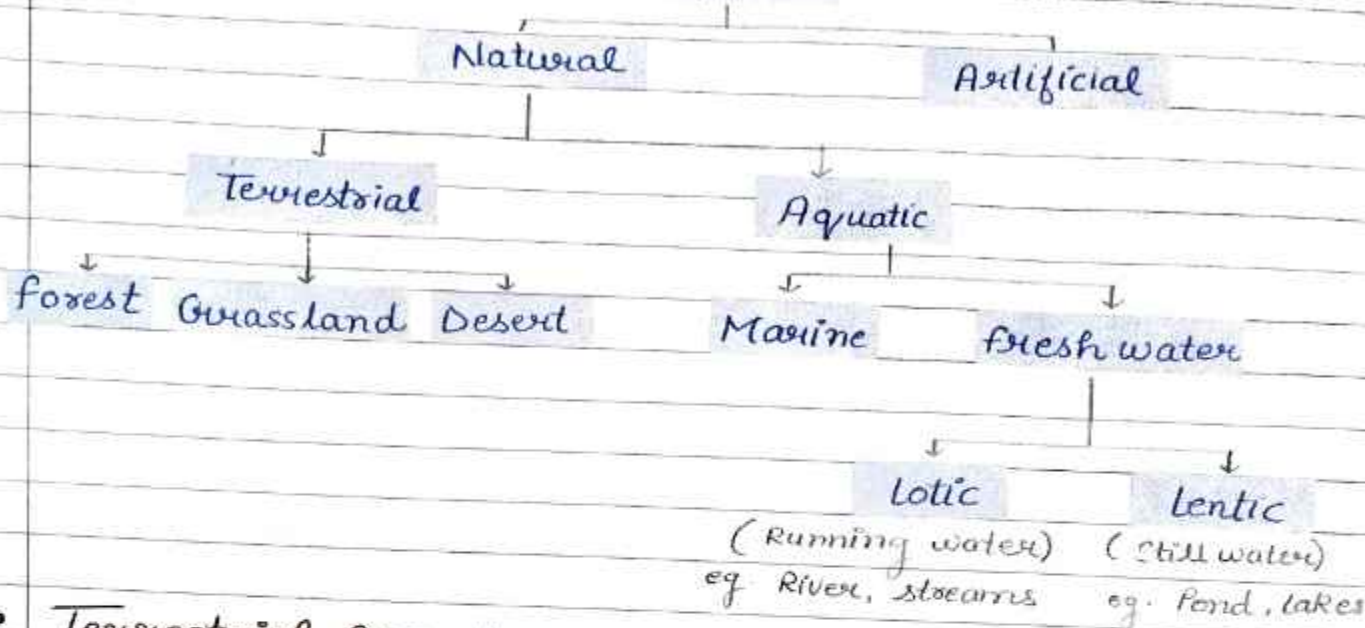 Natural Artificial
Terrestrial Aquatic
forest Grassland Desert Marine fresh water
Lotic Lentic
(Running water) (Still water)
eg River, streams eg. Pond, lakes
Terrestrial